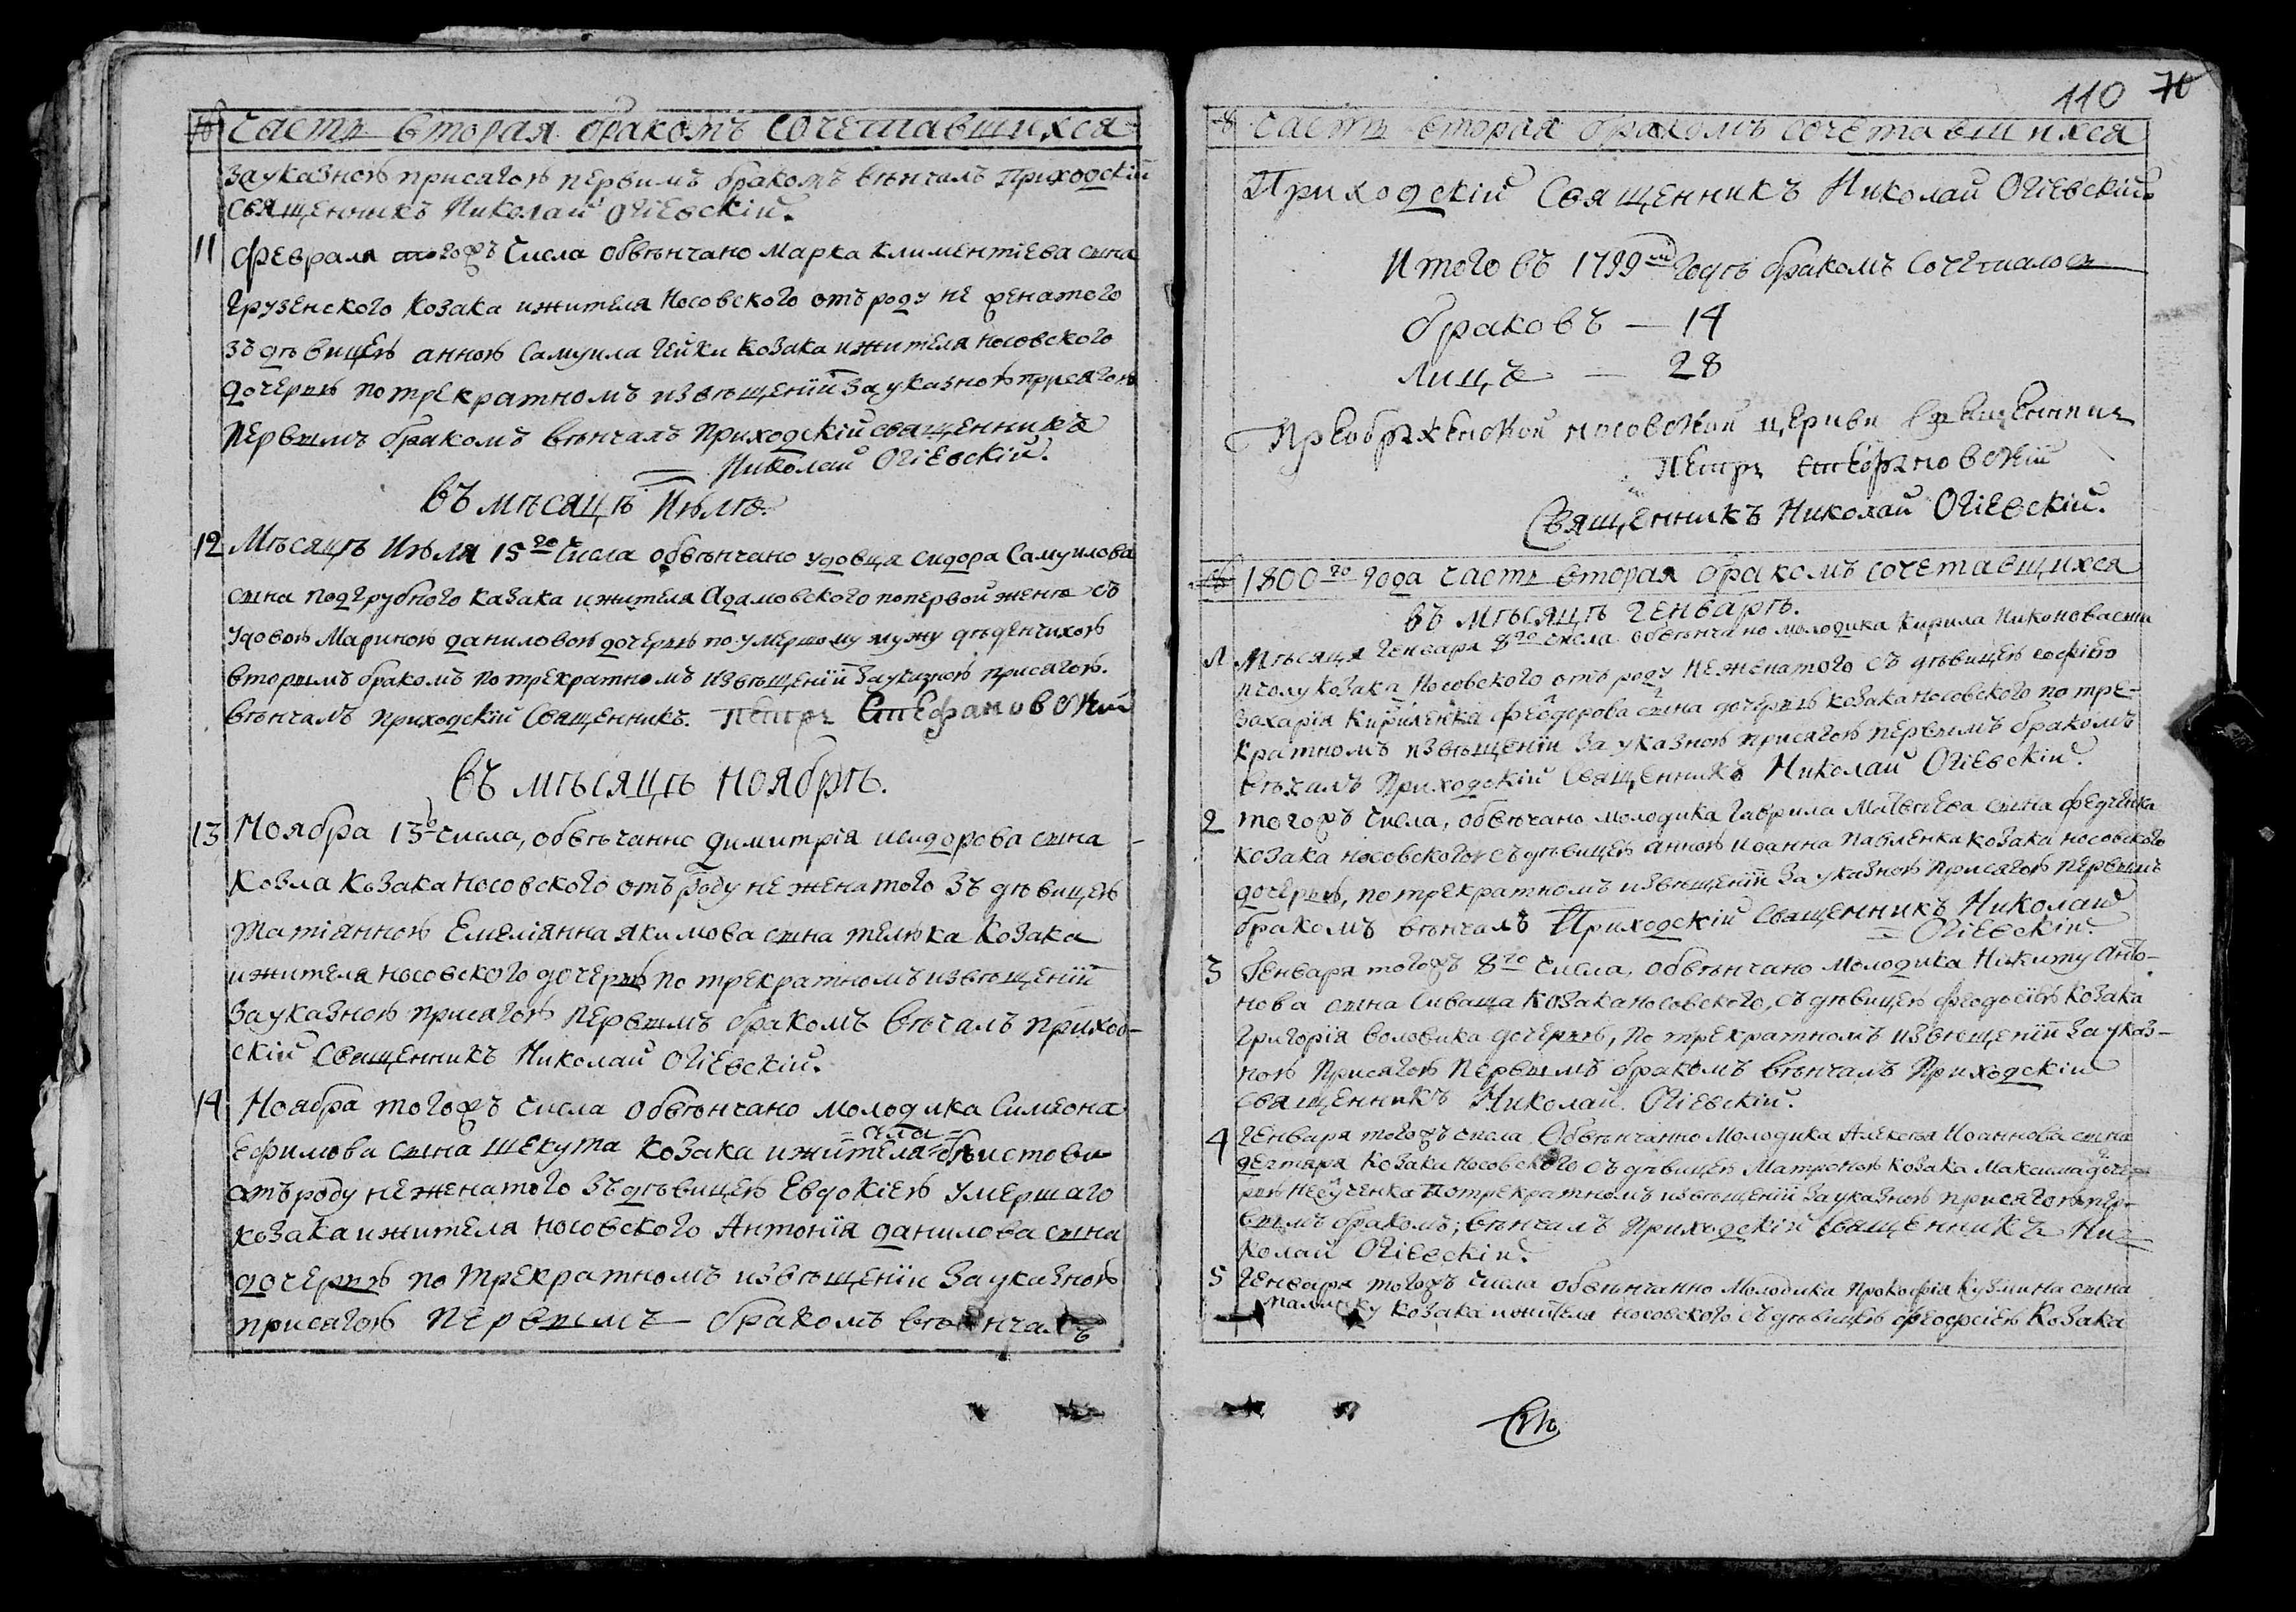 часть вторая бракомъ сочетавшихся
за указноѣ присягоѣ первимъ бракомъ вѣнчалъ Приходскій
Священникъ Николай Огіевскій.
11 Февраля тогожъ числа обвѣнчано Марка Климентіева сына
Грузенского козака ижителя Носовского отъ роду не женатого
зъ дѣвицеѣ анноѣ Самуила Гейки козака ижителя носовского
дочерыѣ по трекратномъ извѣщеніи за указноѣ присягоѣ
Первымъ бракомъ вѣнчалъ Приходскій священникъ
Николай Огіевскій.
въ мѣсяцѣ Июлѣ.
12 Мѣсяцѣ Июля 15го Числа обвѣнчано удовца Сидора Самуилова
сына подгрубного казака ижителя Адамовского по первой женѣ съ
Удовоѣ Мариноѣ даниловоѣ дочерыѣ по умершому мужу дѣденчихоѣ
вторымъ бракомъ по трекратномъ извѣщеніи за указноѣ присягоѣ.
вѣнчалъ приходскій Священникъ. Петръ Стефановскій
въ мѣсяцѣ ноябрѣ.
13 Ноября 13го числа, обвѣчанно Димитрія исидорова сына
Козла Козака Носовского отъ роду не женатого зъ дѣвицеѣ
Татіянноѣ Емеліянна якимова сына телѣка Козака
ижителя носовского дочерыѣ по трекратномъ извѣщеніи
За указноѣ присягоѣ первымъ бракомъ вѣчалъ прихо-
скій Священникъ Николай Огіевскій.
14 Ноября тогожъ числа обвѣнчано молодика Симеона
села
Ефимова сына Шекута козака ижителя
отъ роду не женатого зъ дѣвицеѣ Евдокіеѣ умершаго
козака ижителя носовского Антонія данилова сына
дочерыѣ по трекратномъ извѣщеніи За указноѣ
присягоѣ первымъ бракомъ вѣнчалъ
110 70
часть вторая бракомъ сочетавшихся
Приходскій Священникъ Николай Огіевскій
Итого въ 1799мъ Годѣ бракомъ Сочеталось
браковъ — 14
Лицъ — 28
Преображенской носовской церкви Священникъ
Петръ Стефановскій
Священникъ Николай Огіевскій.
1800го года часть вторая бракомъ сочетавшихся
въ мѣсяцѣ Генварѣ.
1 Мѣсяця Генваря 8го числа обвѣнчано молодика Кирила Никонова сына
пчолу козака Носовского отъ роду неженатого съ дѣвицеѣ софіею
Захарія Кириленка Феодорова сына дочерыѣ козака носовского по тре-
кратномъ извѣщеніи За указноѣ присягоѣ первимъ бракомъ
вѣчалъ Приходскій Священникъ Николай Огіевскій.
2 тогожъ числа, обвѣчано молодика Гаврила Матвѣева сына федченка
козака носовского съ дѣвицеѣ анноѣ иоанна павленка козака носовского
дочерыѣ, по трекратномъ извѣщеніи За указноѣ присягоѣ первымъ
бракомъ вѣнчалъ Приходскій Священникъ Николай
Огіевскій.
3 Генваря тогожъ 8го числа, обвѣнчано Молодика Никиту Анто-
нова сына Сиваша козака носовского, съ дѣвицеѣ феодосіеѣ козака
Григорія воловика дочерыѣ, по трекратномъ извѣщеніи За указ-
ноѣ Присягоѣ первымъ бракомъ вѣнчалъ Приходскій
Священникъ Николай Огіевскій.
4 Генваря тогожъ числа Обвѣнчанно Молодика Алексѣя Иоаннова сына
дегтяря Козака носовского съ дѣвицеѣ Матроноѣ козака Максима доче-
рыѣ По трекратномъ извѣщеніи За указноѣ присягоѣ пер-
вымъ бракомъ; вѣнчалъ Приходскій Священникъ Ни-
колай Огіевскій.
5 Генваря тогожъ числа обвѣнчанно молодика прокофія Кузмина сына
козака ижителя носовского съ дѣвицеѣ Козака